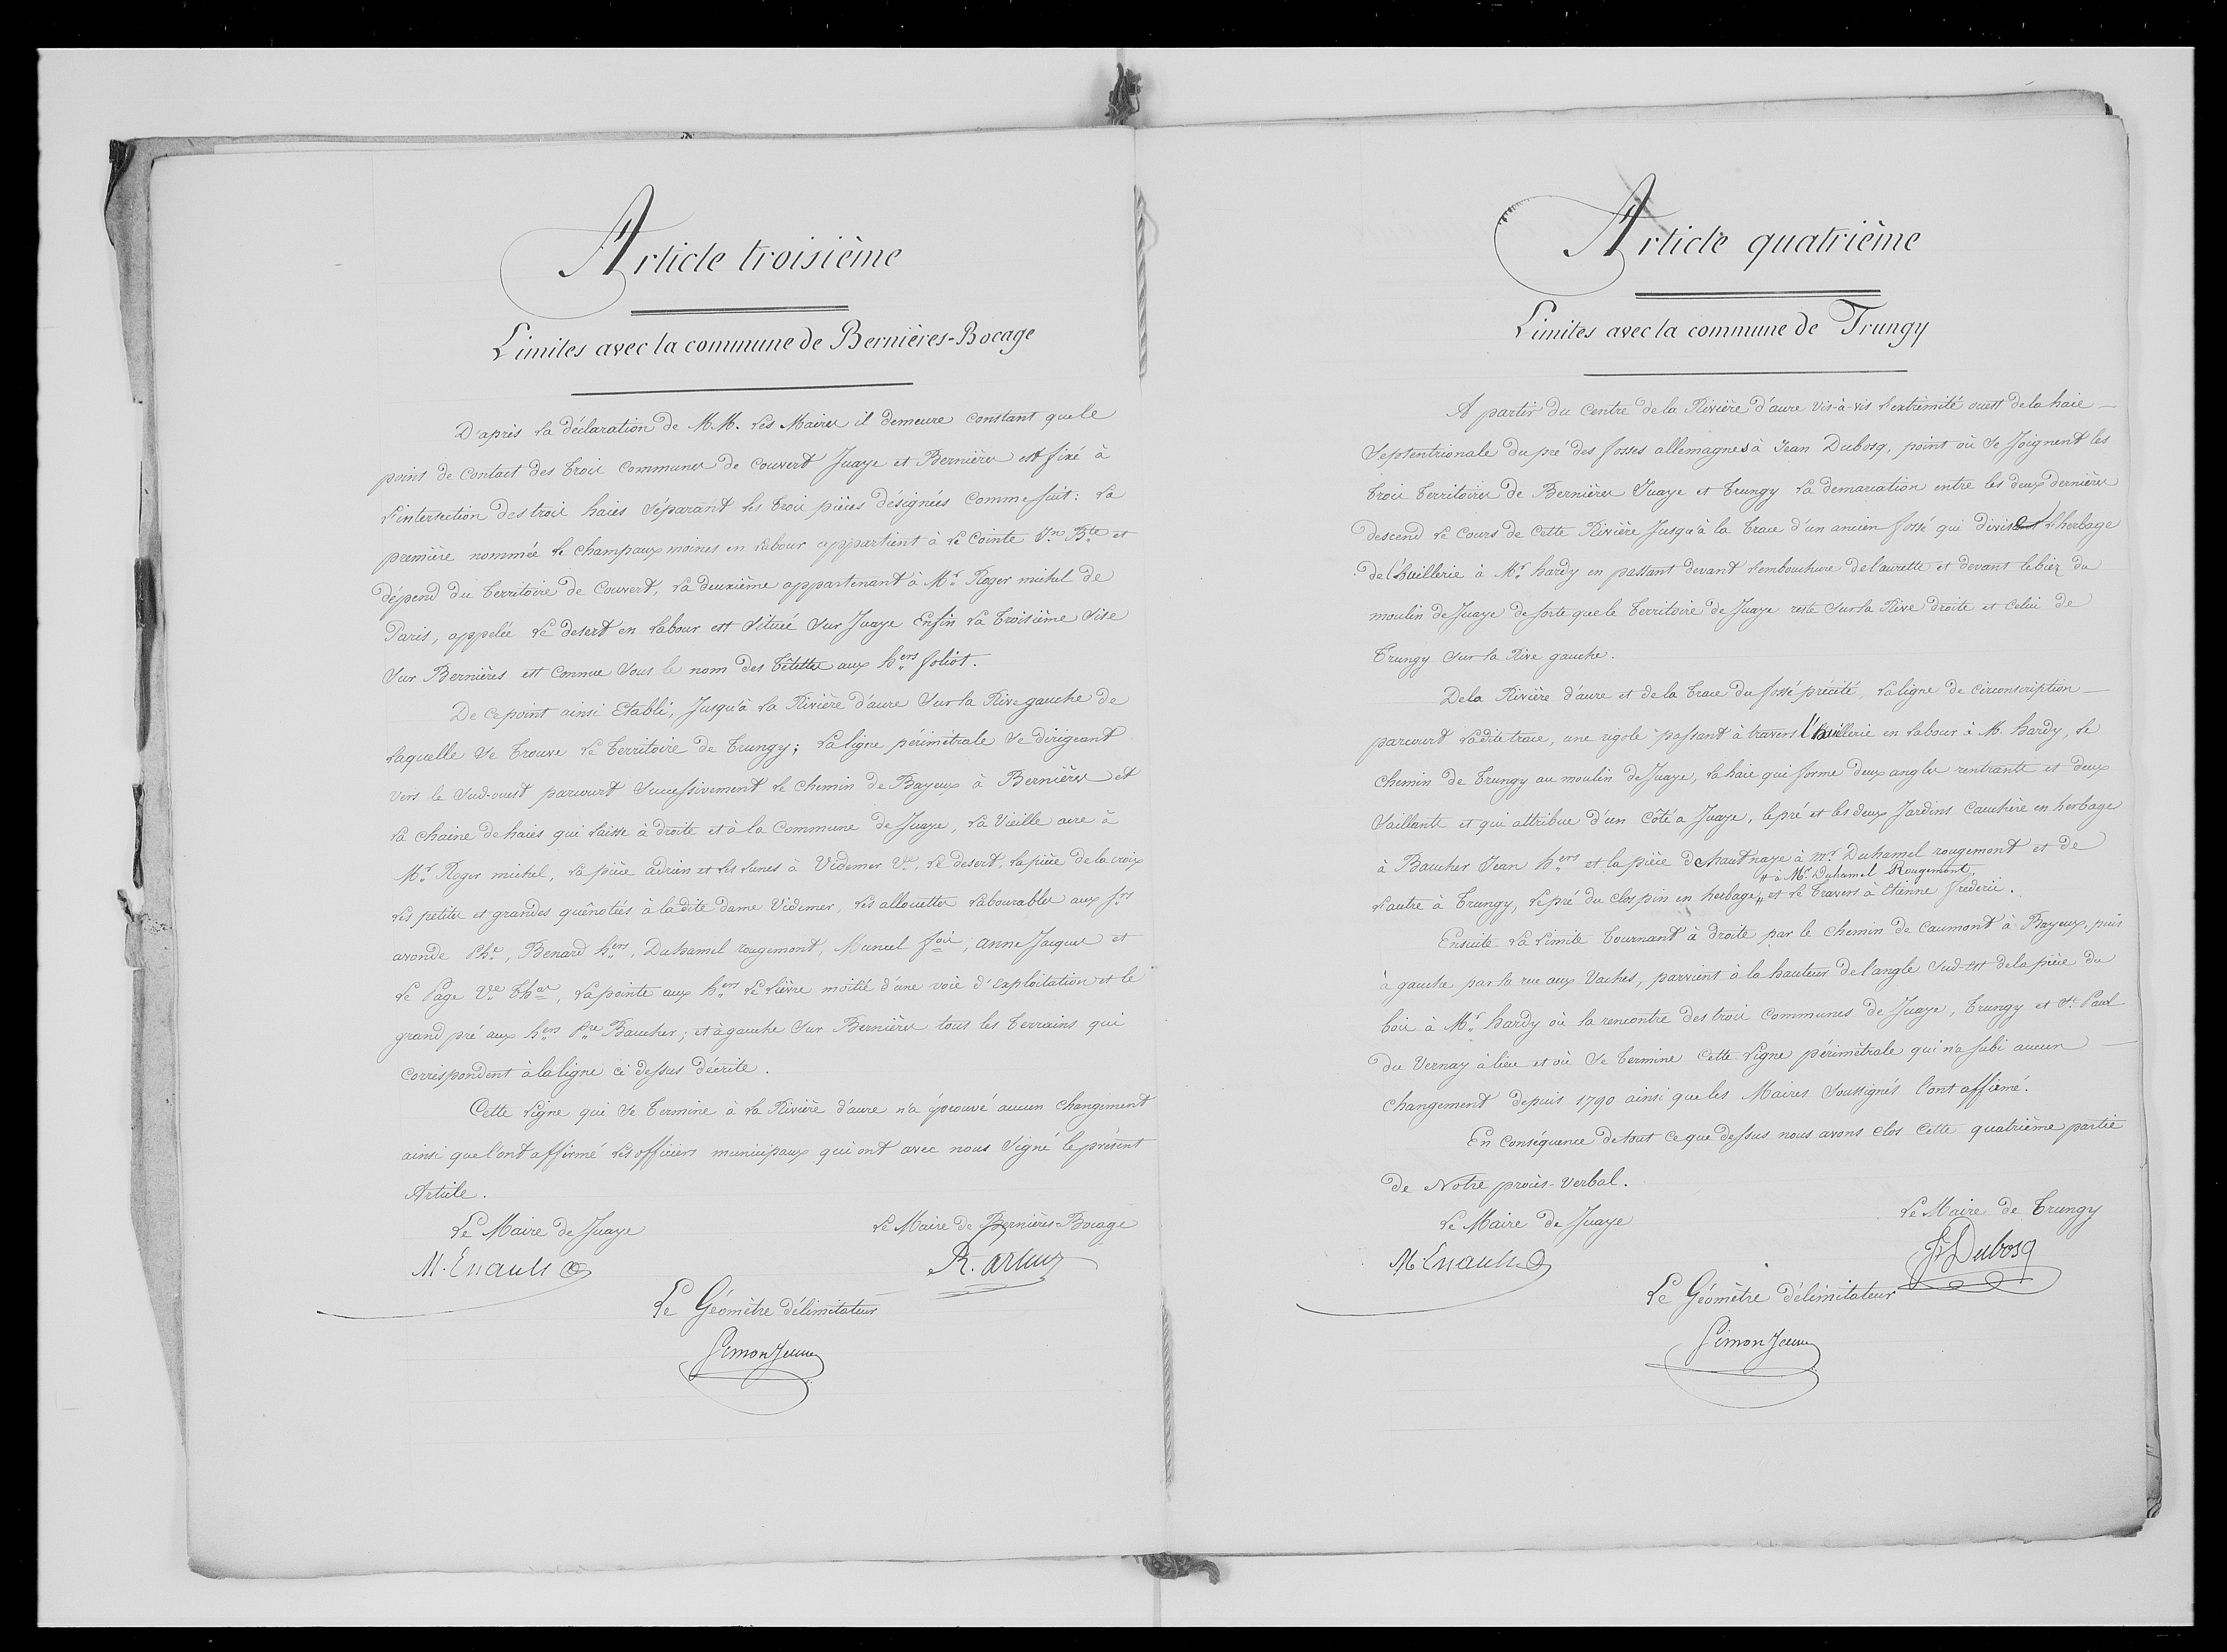 Article troisième
Limites avec la commune de Bernières-Bocage
D'après la déclaration de M.M. les Maires il demeure constant que le
point de contact des trois communes de couvert Juaye et Bernières est fixé à
l'intersection des trois haies séparant les trois pièces désignées comme suit: la
première nommée le champ aux moines en labour appartient à Le Cointe Jn. Bte et
dépend du territoire de Couvert, la deuxième appartenant à Mr. Roger michel de
Paris, appelée le desert en labour est situé sur Juaye Enfin la troisième sise
sur Bernières est connue sous le nom des têtettes aux hers foliot.
De ce point ainsi Etabli, jusqu'à la Rivière d'aure sur la Rive gauche de
laquelle se trouve le territoire de Trungy; la ligne périmetrale se dirigeant
vers le Sud-ouest parcourt successivement le chemin de Bayeux à Bernières et
la chaine de haies qui laisse à droite et à la commune de Juaye, la Vieille acre à
Mr. Roger michel, la pièce adrien et les lunes à Videmer Ve. le desert, la pièce de la croix
les petites et grandes quênotées à la dite dame Videmer, les allouettes labourables aux frs
avonde Phe, Benard hers, Duhamel rougemont, Mancel fois, anne Jacques et
Le Page Ve Thas, la pointe aux hers Le lièvre moitié d'une voie d'exploitation et le
grand pré aux hers Pre Baucher; et à gauche sur Bernières tous les terrains qui
correspondent à la ligne ci dessus décrite.
Cette ligne qui se termine à la Rivière d'aure n'a éprouvé aucun changement
ainsi que l'ont affirmé les officiers municipaux qui ont avec nous signé le présent
Article.
Le Maire de Juaye
Le Maire de Bernières-Bocage
M. Enault
R. artur
Le Géomètre délimitateur
Simon Jeune
Article quatrième
Limites avec la commune de Trungy
A partir du centre de la Rivière d'aure vis-à-vis l'extrémité ouest de la haie
septentrionale du pré des fosses allemagnes à Jean Dubosq, point où se joignent les
trois territoires de Bernières Juaye et Trungy la demarcation entre les deux dernières
descend le cours de cette Rivière jusqu'à la trace d'un ancien fossé qui divise l'herbage
de l'huillerie à Mr. hardy en passant devant l'embouchure de l'aurette et devant le biez du
moulin de Juaye de sorte que le territoire de Juaye reste sur la Rive droite et celui de
Trungy sur la Rive gauche.
De la Rivière d'aure et de la trace du fossé précité, la ligne de circonscription
parcourt ladite trace, une rigole passant à travers l'huillerie en labour à M. hardy, le
chemin de Trungy au moulin de Juaye, la haie qui forme deux angles rentrants et deux
saillants et qui attribue d'un côté à Juaye, le pré et les deux Jardins Cauchère en herbages
à Baucher Jean hers et la pièce de hautnaye à mr. Duhamel rougemont et de
" à Mr. Duhamel Rougemont,
l'autre à Trungy, le pré du clos pin en herbage " et le travers à Etienne frederic.
Ensuite la limite tournant à droite par le chemin de Caumont à Bayeux, puis
à gauche par la rue aux Vaches, parvient à la hauteur de l'angle sud-est de la pièce du
bois à Mr. hardy où la rencontre des trois communes de Juaye, Trungy et St. Paul
du Vernay à lieu et où se termine cette ligne périmètrale qui n'a subi aucun
changement depuis 1790 ainsi que les Maires soussignés l'ont affirmé.
En conséquence de tout ce que dessus nous avons clos cette quatrième partie
de Notre procès-verbal.
Le Maire de Juaye
Le Maire de Trungy
M. Enault
J. Dubosq
Le Géomètre délimitateur
Simon Jeune